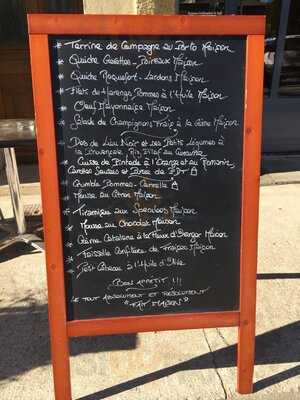 * Terrine de Campagne au Porto Maison
* Quiche Poireaux Maison
* Quiche Roquefort - Lardons Maison
* Filets de Harengs Pommes à l'Huile Maison
* Oeuf Mayonnaise Maison
* Salade de Champignons Frais à la Crème Maison
* Dos de Lieu Noir et ses Petits légumes à
la Provençale Riz Pilaf au Curcuma
* Cuisse de Pintade à l'Orange et au Romarin,
Carottes Sautées et Purée de PDT
* Crumble Pommes - Cannelle
* Mousse au Citron Maison
* Tiramisu aux Speculoos Maison
* Mousse au Chocolat Maison
* Crème Catalane à la Fleur d'Oranger Maison
* Faisselle Confiture de Fraises Maison
* Petit Gâteau à l'Huile d'Olive
Bon Appétit !!!
* Tout Absolument et Résolument
"Fait Maison"